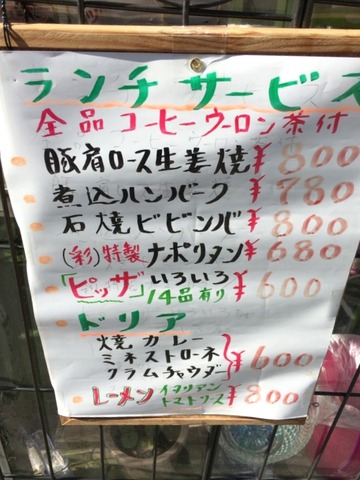 ランチサービス
全品コーヒーウーロン茶付
豚肩ロース生姜焼¥800
煮込ハンバーク¥780
石焼ビビンバ¥800
(彩)特製ナポリタン¥680
「ピッザ」いろいろ14品有り¥600
ドリア
焼カレー
ミネストローネ
クラムチャウダー
¥600
レーメン イタリアントマトリス¥800